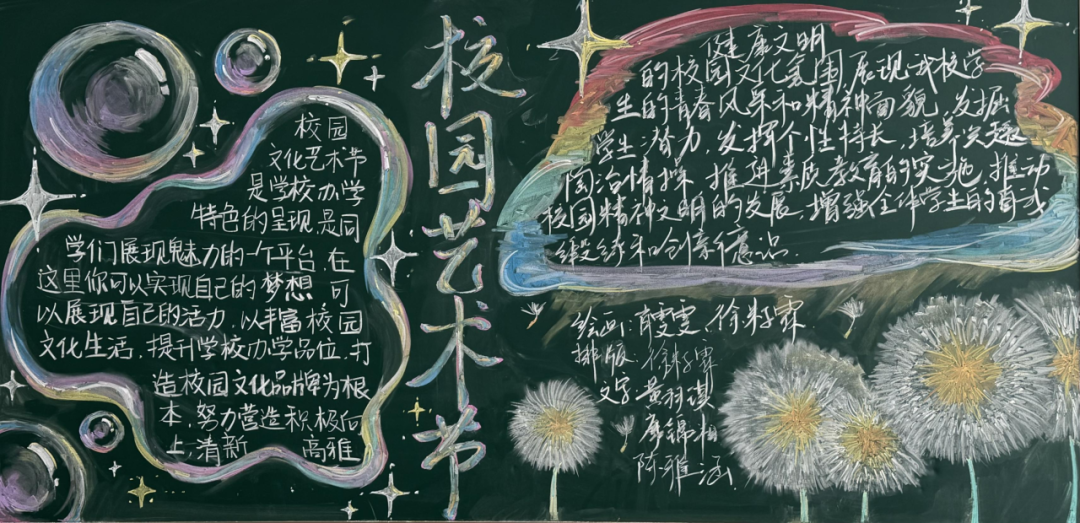 校园艺术节
校园
文化艺术节
是学校办学
特色的呈现,是同
学们展现魅力的一个平台,在
这里你可以实现自己的梦想,可
以展现自己的活力,以丰富校园
文化生活,提升学校办学品位,打
造校园文化品牌为根
本,努力营造积极向
上,清新 高雅
健康文明
的校园文化氛围,展现我校学
生的青春风采和精神面貌,发掘
学生潜力,发挥个性特长,培养兴趣
陶冶情操,推进素质教育的实施,推动
校园精神文明的发展,增强全体学生的自我
锻练和创新意识.
绘画:雯雯、徐霖
排版:徐
文字:黄羽琪
席锦
陈雅涵